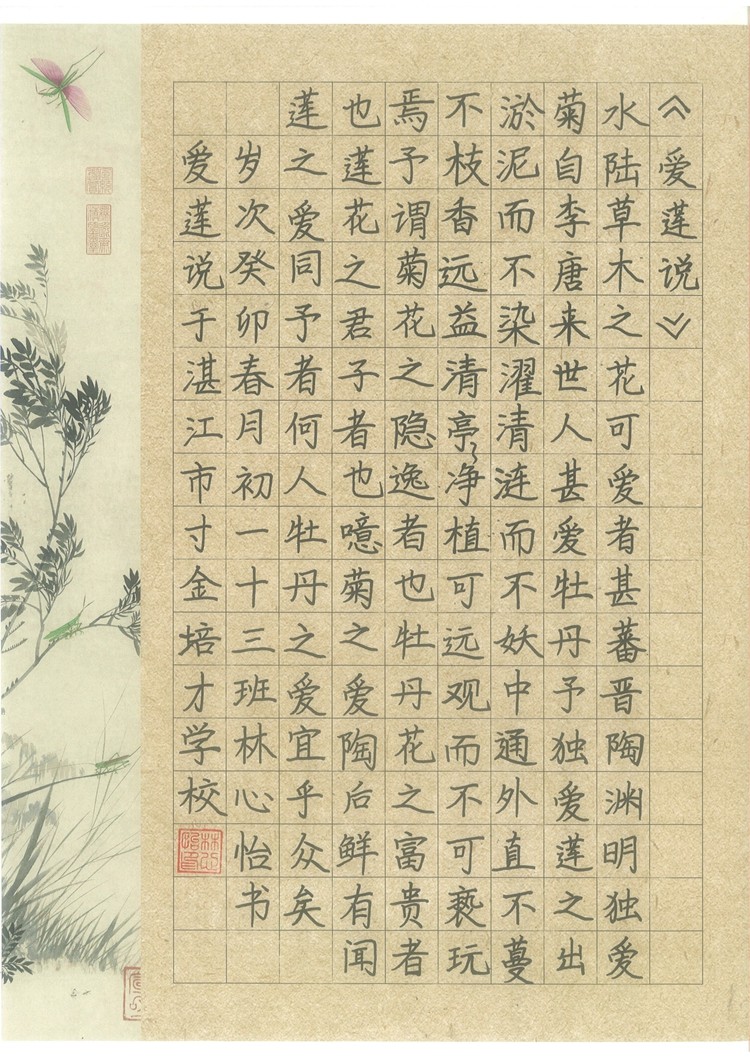 《爱莲说》
水陆草木之花可爱者甚蕃晋陶渊明独爱
菊自李唐来世人甚爱牡丹予独爱莲之出
淤泥而不染濯清涟而不妖中通外直不蔓
不枝香远益清亭々净植可远观而不可亵玩
焉予谓菊花之隐逸者也牡丹花之富贵者
也莲花之君子者也噫菊之爱陶后鲜有闻
莲之爱同予者何人牡丹之爱宜乎众矣
岁次癸卯春月初一十三班林心怡书
爱莲说于湛江市寸金培才学校
林心怡印